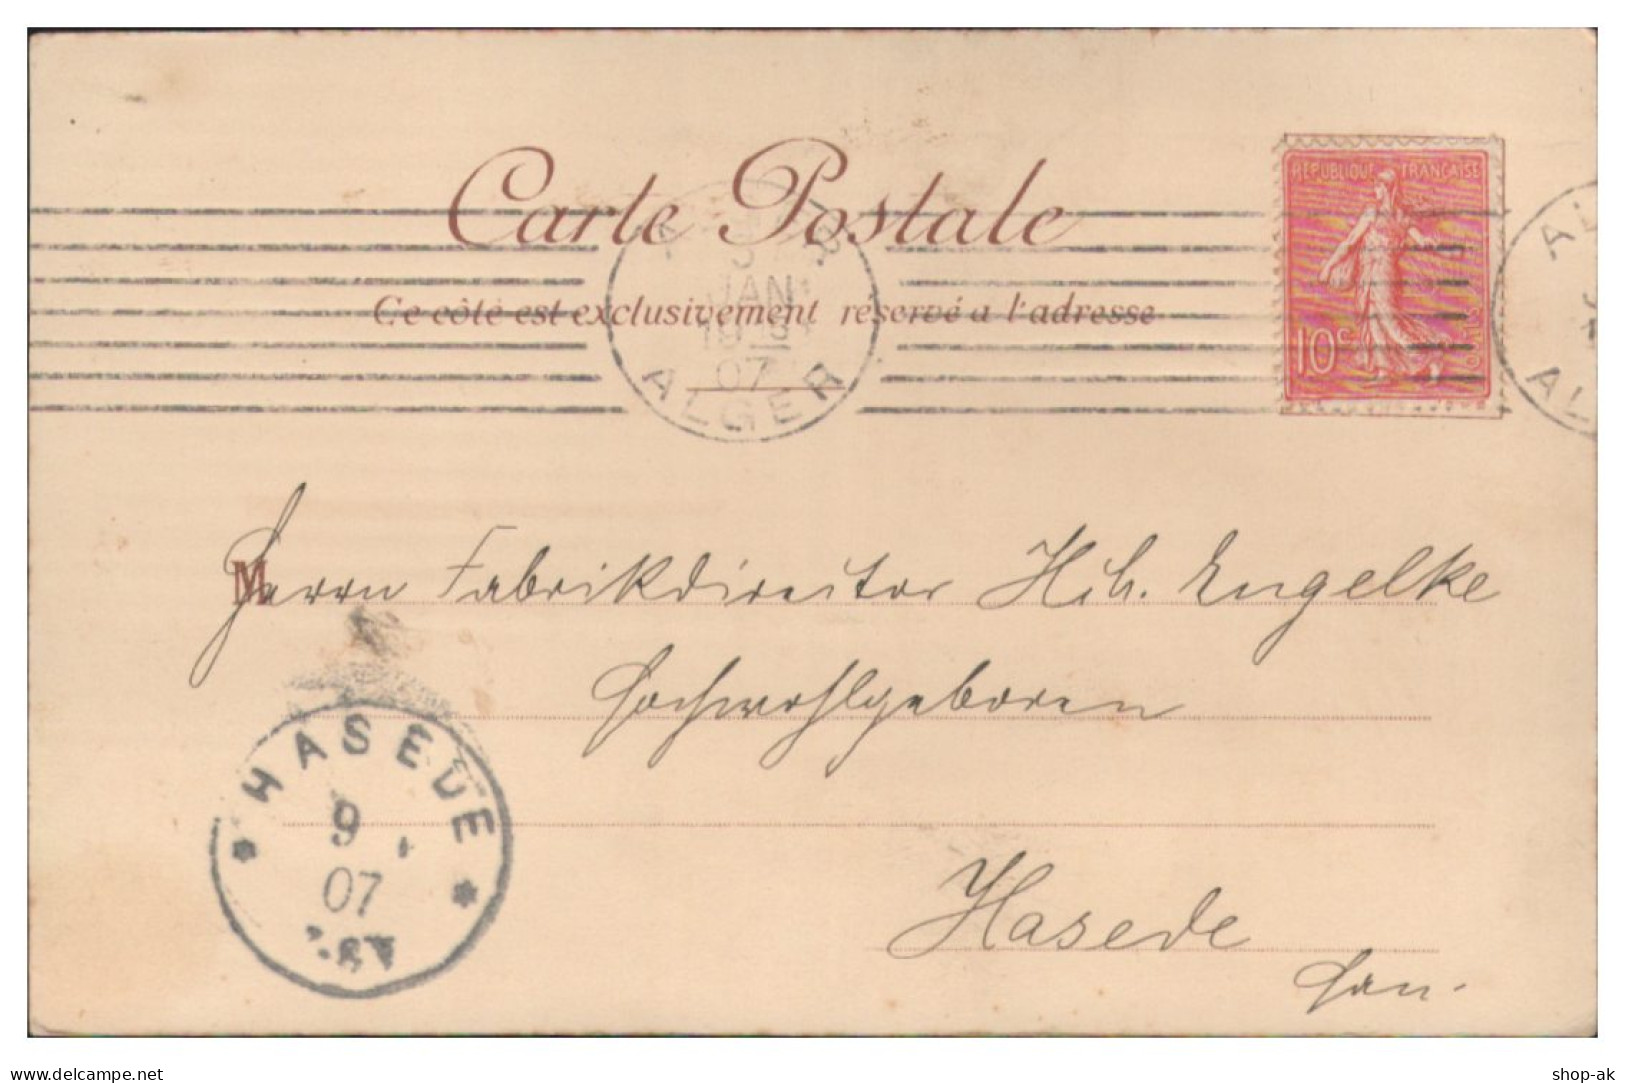 Carte Postale
RÉPUBLIQUE FRANÇAISE
JAN
07
ALGER
AL
AL
Ce côté est exclusivement réservé a l'adresse
10c
M
Herrn Fabrikdirector Hib. Engelke
Hochwohlgeboren
HASEDE
9
07
Hasede
Han.
www.delcampe.net
shop-ak